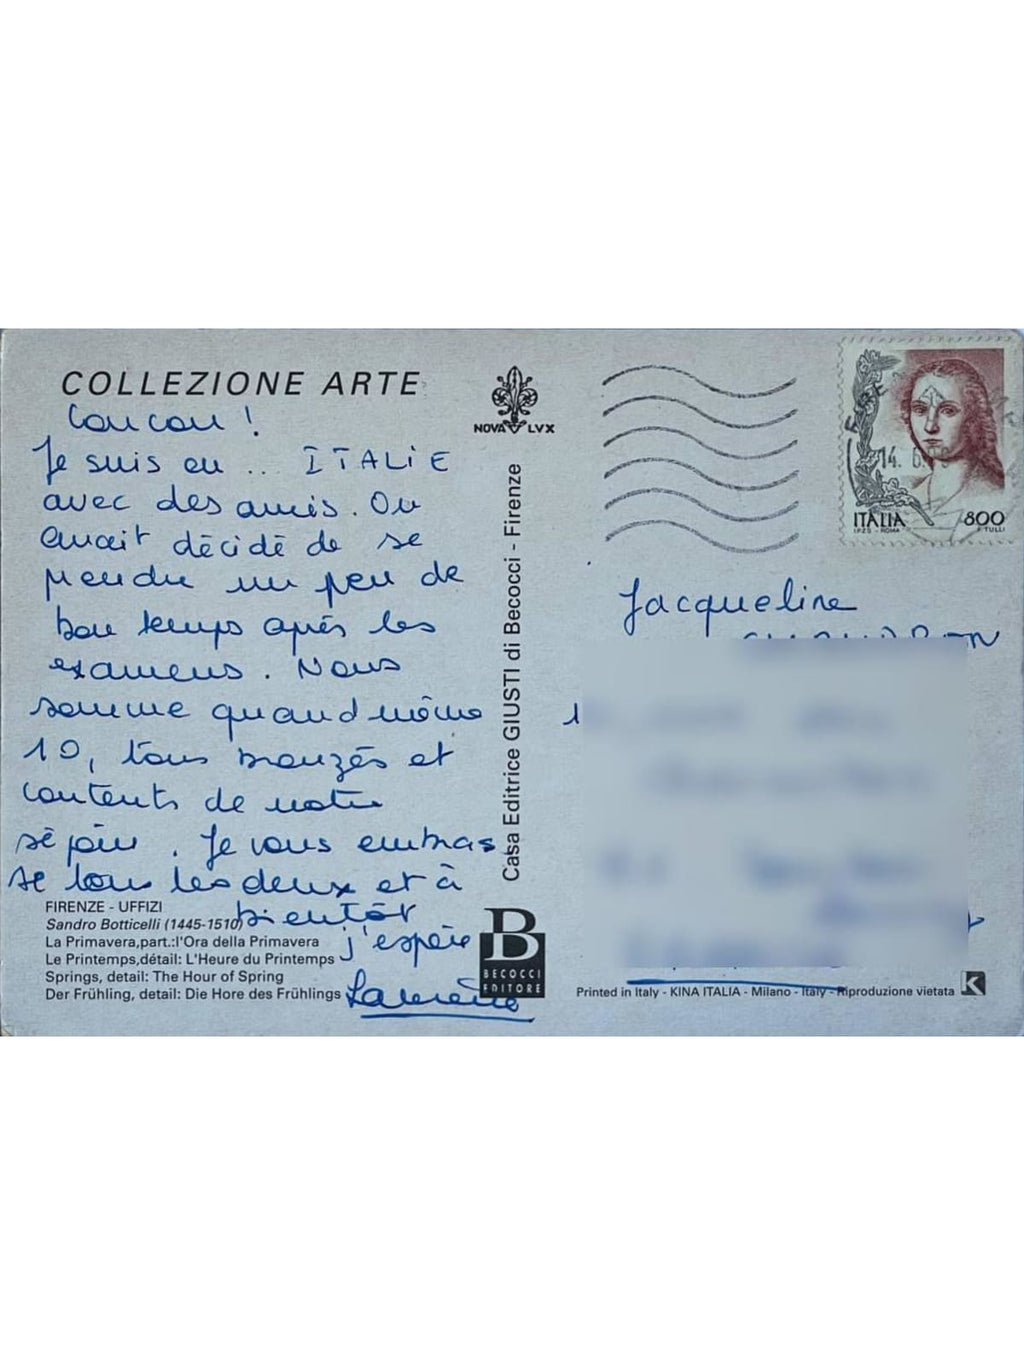 COLLEZIONE ARTE
Coucou !
Je suis en ... ITALIE
avec des amis. On
avait décidé de se
prendre un peu de
bon temps après les
examens. Nous
somme quand même
10, tous bronzés et
contents de notre
séjour. Je vous embras
se tous les deux et à
bientôt
j'espère
Laurène
FIRENZE - UFFIZI
Sandro Botticelli (1445-1510)
La Primavera,part.:l'Ora della Primavera
Le Printemps,détail: L'Heure du Printemps
Springs, detail: The Hour of Spring
Der Frühling, detail: Die Hore des Frühlings
NOVA LVX
Casa Editrice GIUSTI di Becocci - Firenze
B
BECOCCI
EDITORE
14. 6.
ITALIA 800
I.P.Z.S. - ROMA F. TULLI
Jacqueline
1
Printed in Italy - KINA ITALIA - Milano - Italy - Riproduzione vietata
K